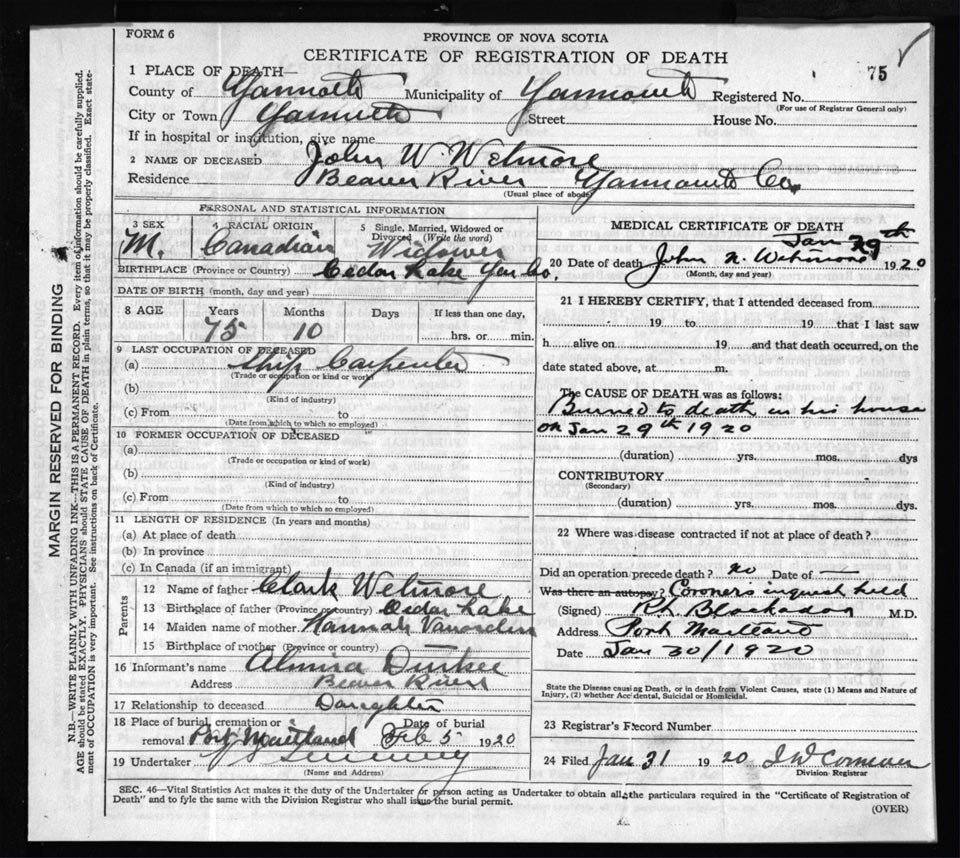 FORM 6
PROVINCE OF NOVA SCOTIA
CERTIFICATE OF REGISTRATION OF DEATH
75
1 PLACE OF DEATH—
County of Yarmouth Municipality of Yarmouth Registered No.
(For use of Registrar General only)
City or Town Yarmouth Street House No.
If in hospital or institution, give name
2 NAME OF DECEASED John W. Wetmore
Residence Beaver River Yarmouth Co.
(Usual place of abode)
PERSONAL AND STATISTICAL INFORMATION
3 SEX M.
4 RACIAL ORIGIN Canadian
5 Single, Married, Widowed or Divorced (Write the word) Widower
BIRTHPLACE (Province or Country) Cedar Lake Yar Co.
DATE OF BIRTH (month, day and year)
8 AGE Years Months Days If less than one day,
75 10 hrs. or min.
9 LAST OCCUPATION OF DECEASED
(a) Ship Carpenter
(Trade or occupation or kind of work)
(b)
(Kind of industry)
(c) From to
(Date from which to which so employed)
10 FORMER OCCUPATION OF DECEASED
(a)
(Trade or occupation or kind of work)
(b)
(Kind of industry)
(c) From to
(Date from which to which so employed)
11 LENGTH OF RESIDENCE (In years and months)
(a) At place of death
(b) In province
(c) In Canada (if an immigrant)
Parents
12 Name of father Clark Wetmore
13 Birthplace of father (Province or country) Cedar Lake
14 Maiden name of mother Hannah
15 Birthplace of mother (Province or country)
16 Informant's name Almira Durkee
Address Beaver River
17 Relationship to deceased Daughter
18 Place of burial, cremation or removal Port Maitland Date of burial Feb 5 1920
19 Undertaker
(Name and Address)
MEDICAL CERTIFICATE OF DEATH
Jan 29th
20 Date of death John W. Wetmore 1920
(Month, day and year)
21 I HEREBY CERTIFY, that I attended deceased from
19 to 19 that I last saw
h alive on 19 and that death occurred, on the
date stated above, at m.
The CAUSE OF DEATH was as follows:
Burned to death in his house
on Jan 29th 1920
(duration) yrs. mos. dys
CONTRIBUTORY
(Secondary)
(duration) yrs. mos. dys.
22 Where was disease contracted if not at place of death?
Did an operation precede death? no Date of
Was there an autopsy? Coroners inquest held
(Signed) M.D.
Address Port Maitland
Date Jan 30/1920
State the Disease causing Death, or in death from Violent Causes, state (1) Means and Nature of
Injury, (2) whether Accidental, Suicidal or Homicidal.
23 Registrar's Record Number
24 Filed Jan 31 1920
Division Registrar
SEC. 46—Vital Statistics Act makes it the duty of the Undertaker or person acting as Undertaker to obtain all the particulars required in the "Certificate of Registration of
Death" and to fyle the same with the Division Registrar who shall issue the burial permit.
(OVER)
MARGIN RESERVED FOR BINDING
N.B.—WRITE PLAINLY WITH UNFADING INK—THIS IS A PERMANENT RECORD. Every item of information should be carefully supplied.
AGE should be stated EXACTLY. PHYSICIANS should STATE CAUSE OF DEATH in plain terms, so that it may be properly classified. Exact state-
ment of OCCUPATION is very important. See instructions on back of Certificate.